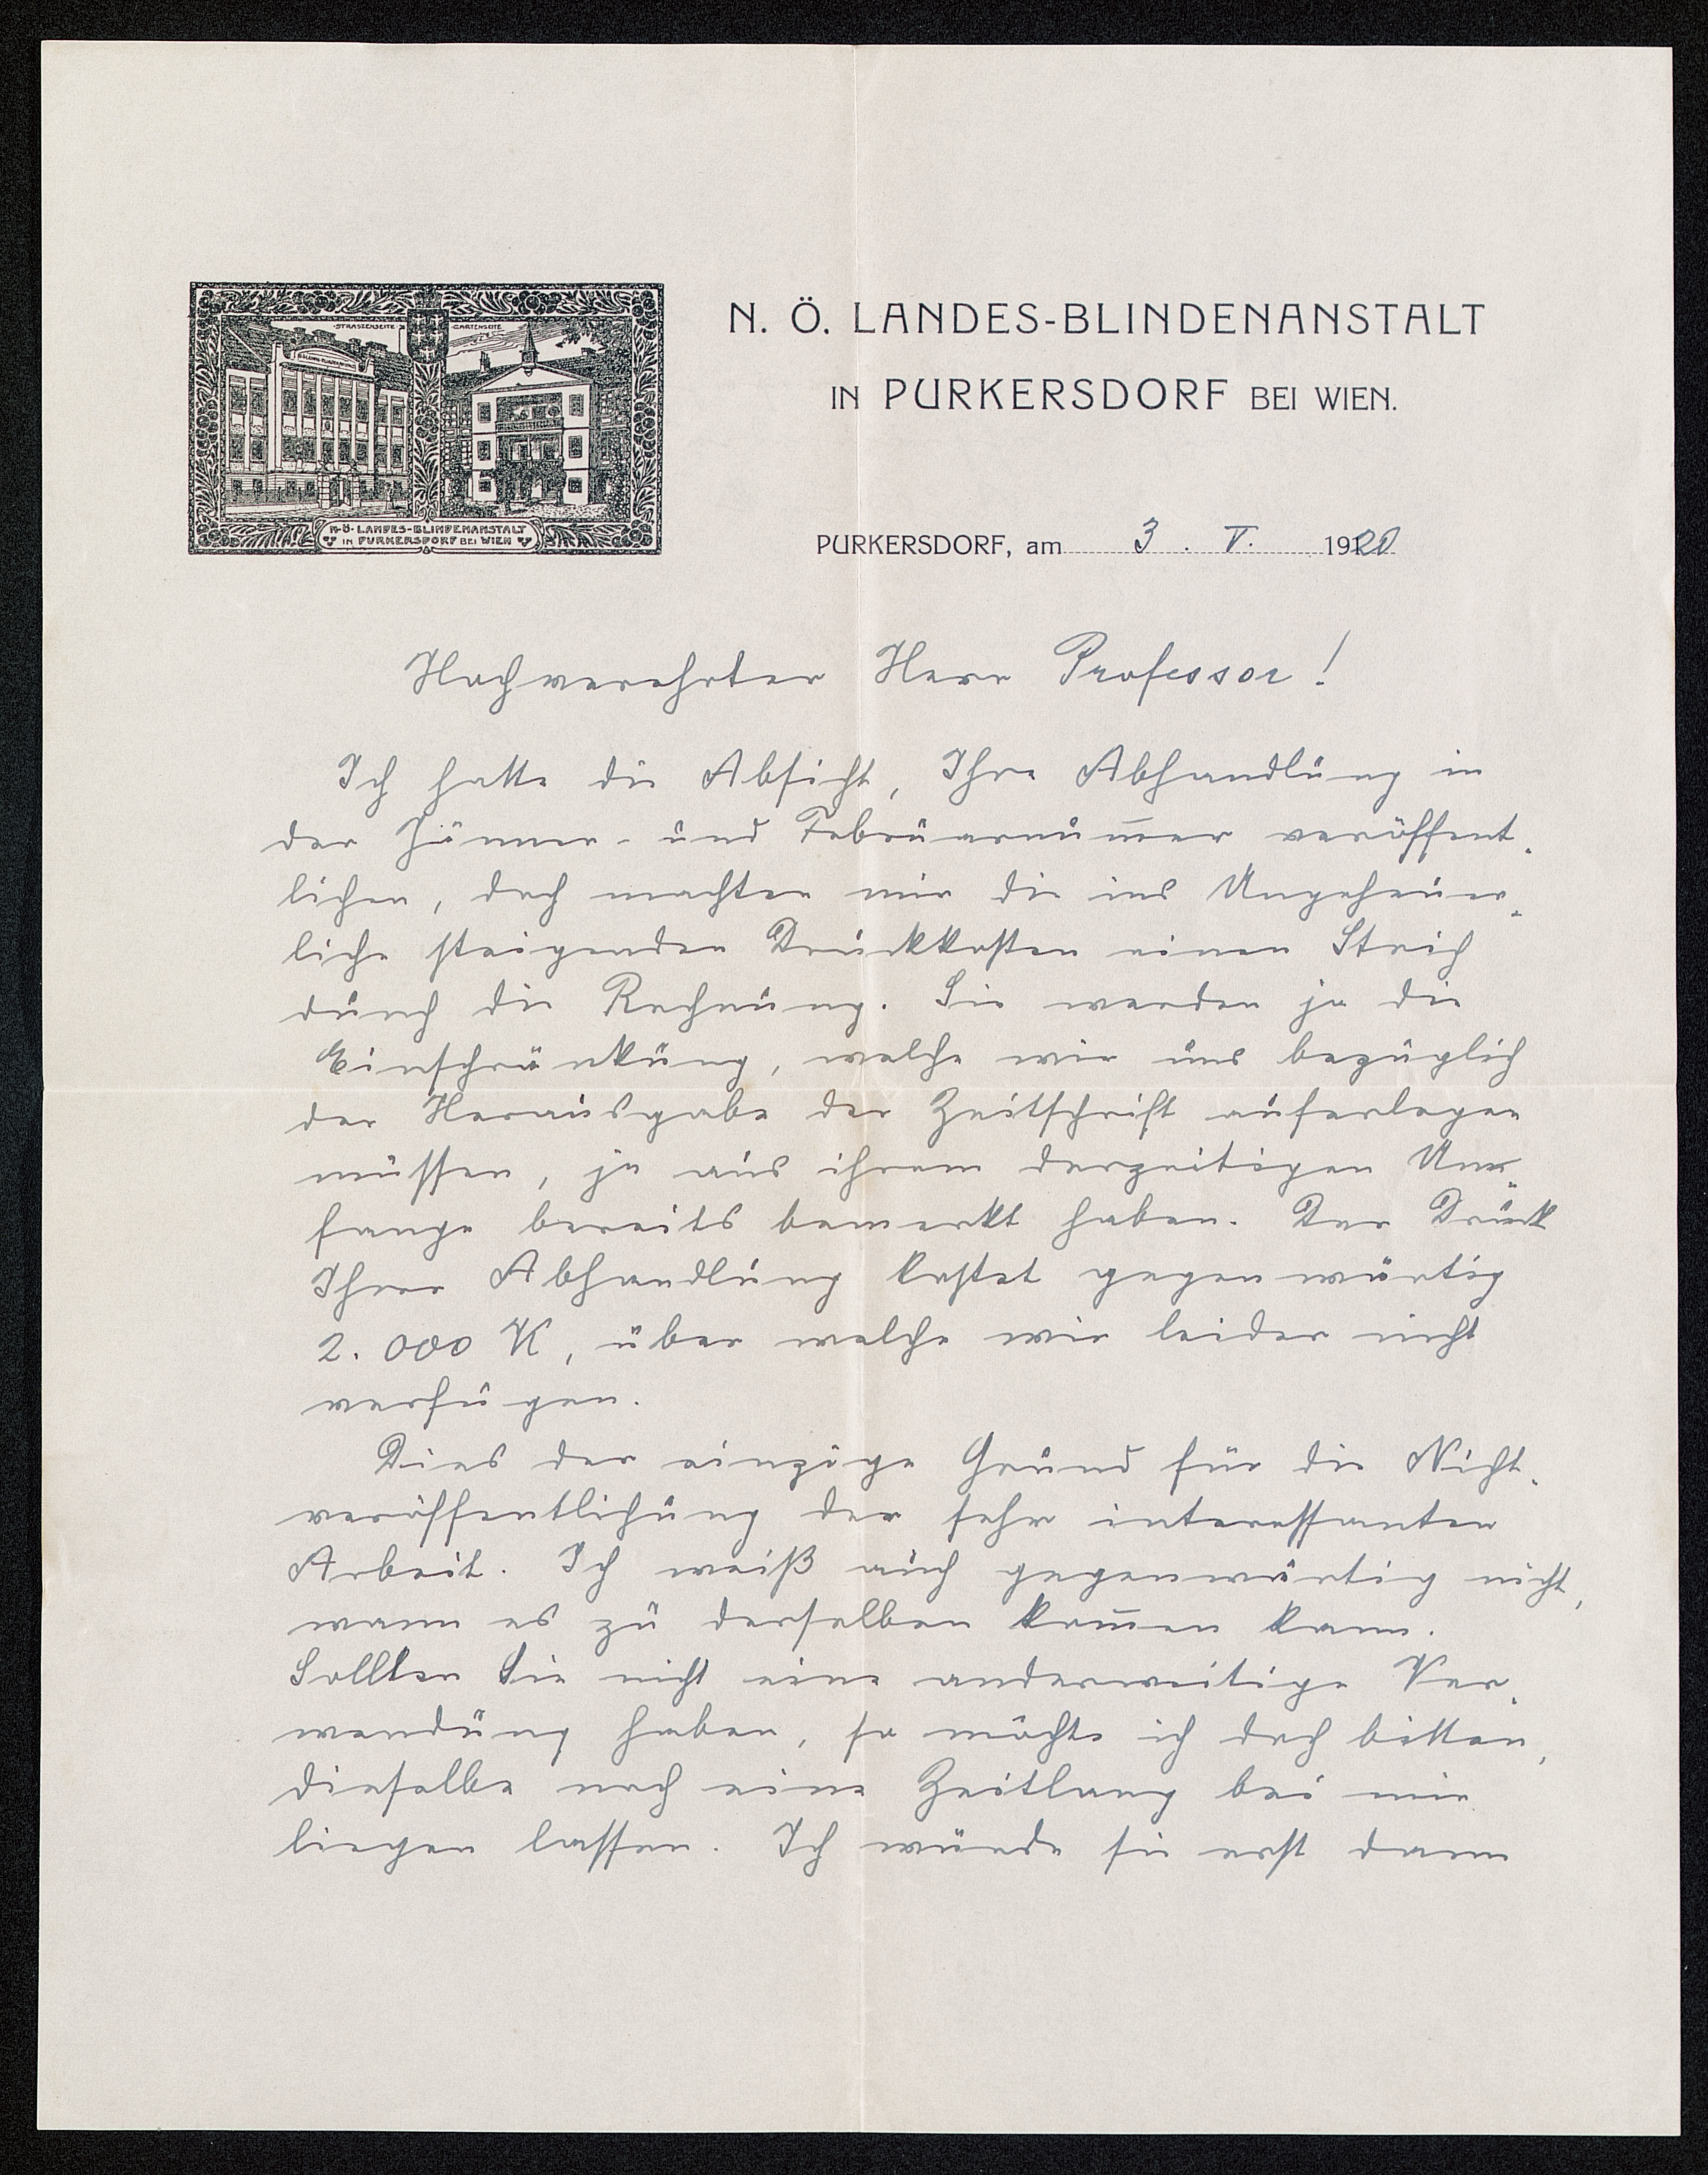 ·STRASZENSEITE·
·GARTENSEITE·
N·Ö·LANDES-BLINDENANSTALT
IN PURKERSDORF BEI WIEN
N. Ö. LANDES-BLINDENANSTALT
IN PURKERSDORF BEI WIEN.
PURKERSDORF, am 3. V. 1920
Hochverehrter Herr Professor!
Ich hatte die Absicht, Ihre Abhandlung in
der Jänner- und Februarnum̅er veröffent-
lichen, doch machten mir die ins Ungeheuer-
liche steigenden Druckkosten einen Strich
durch die Rechnung. Sie werden ja die
Einschränkung, welche wir uns bezüglich
der Herausgabe der Zeitschrift auferlegen
müssen, ja aus ihrem derzeitigen Um-
fange bereits bemerkt haben. Der Druck
Ihrer Abhandlung kostet gegenwärtig
2.000 K, über welche wir leider nicht
verfügen.
Dies der einzige Grund für die Nicht-
veröffentlichung der sehr interessanten
Arbeit. Ich weiß auch gegenwärtig nicht,
wann es zu derselben kom̅en kann.
Sollten Sie nicht eine anderweitige Ver-
wendung haben, so möchte ich doch bitten,
dieselbe noch eine Zeitlang bei mir
liegen lassen. Ich würde sie erst dann